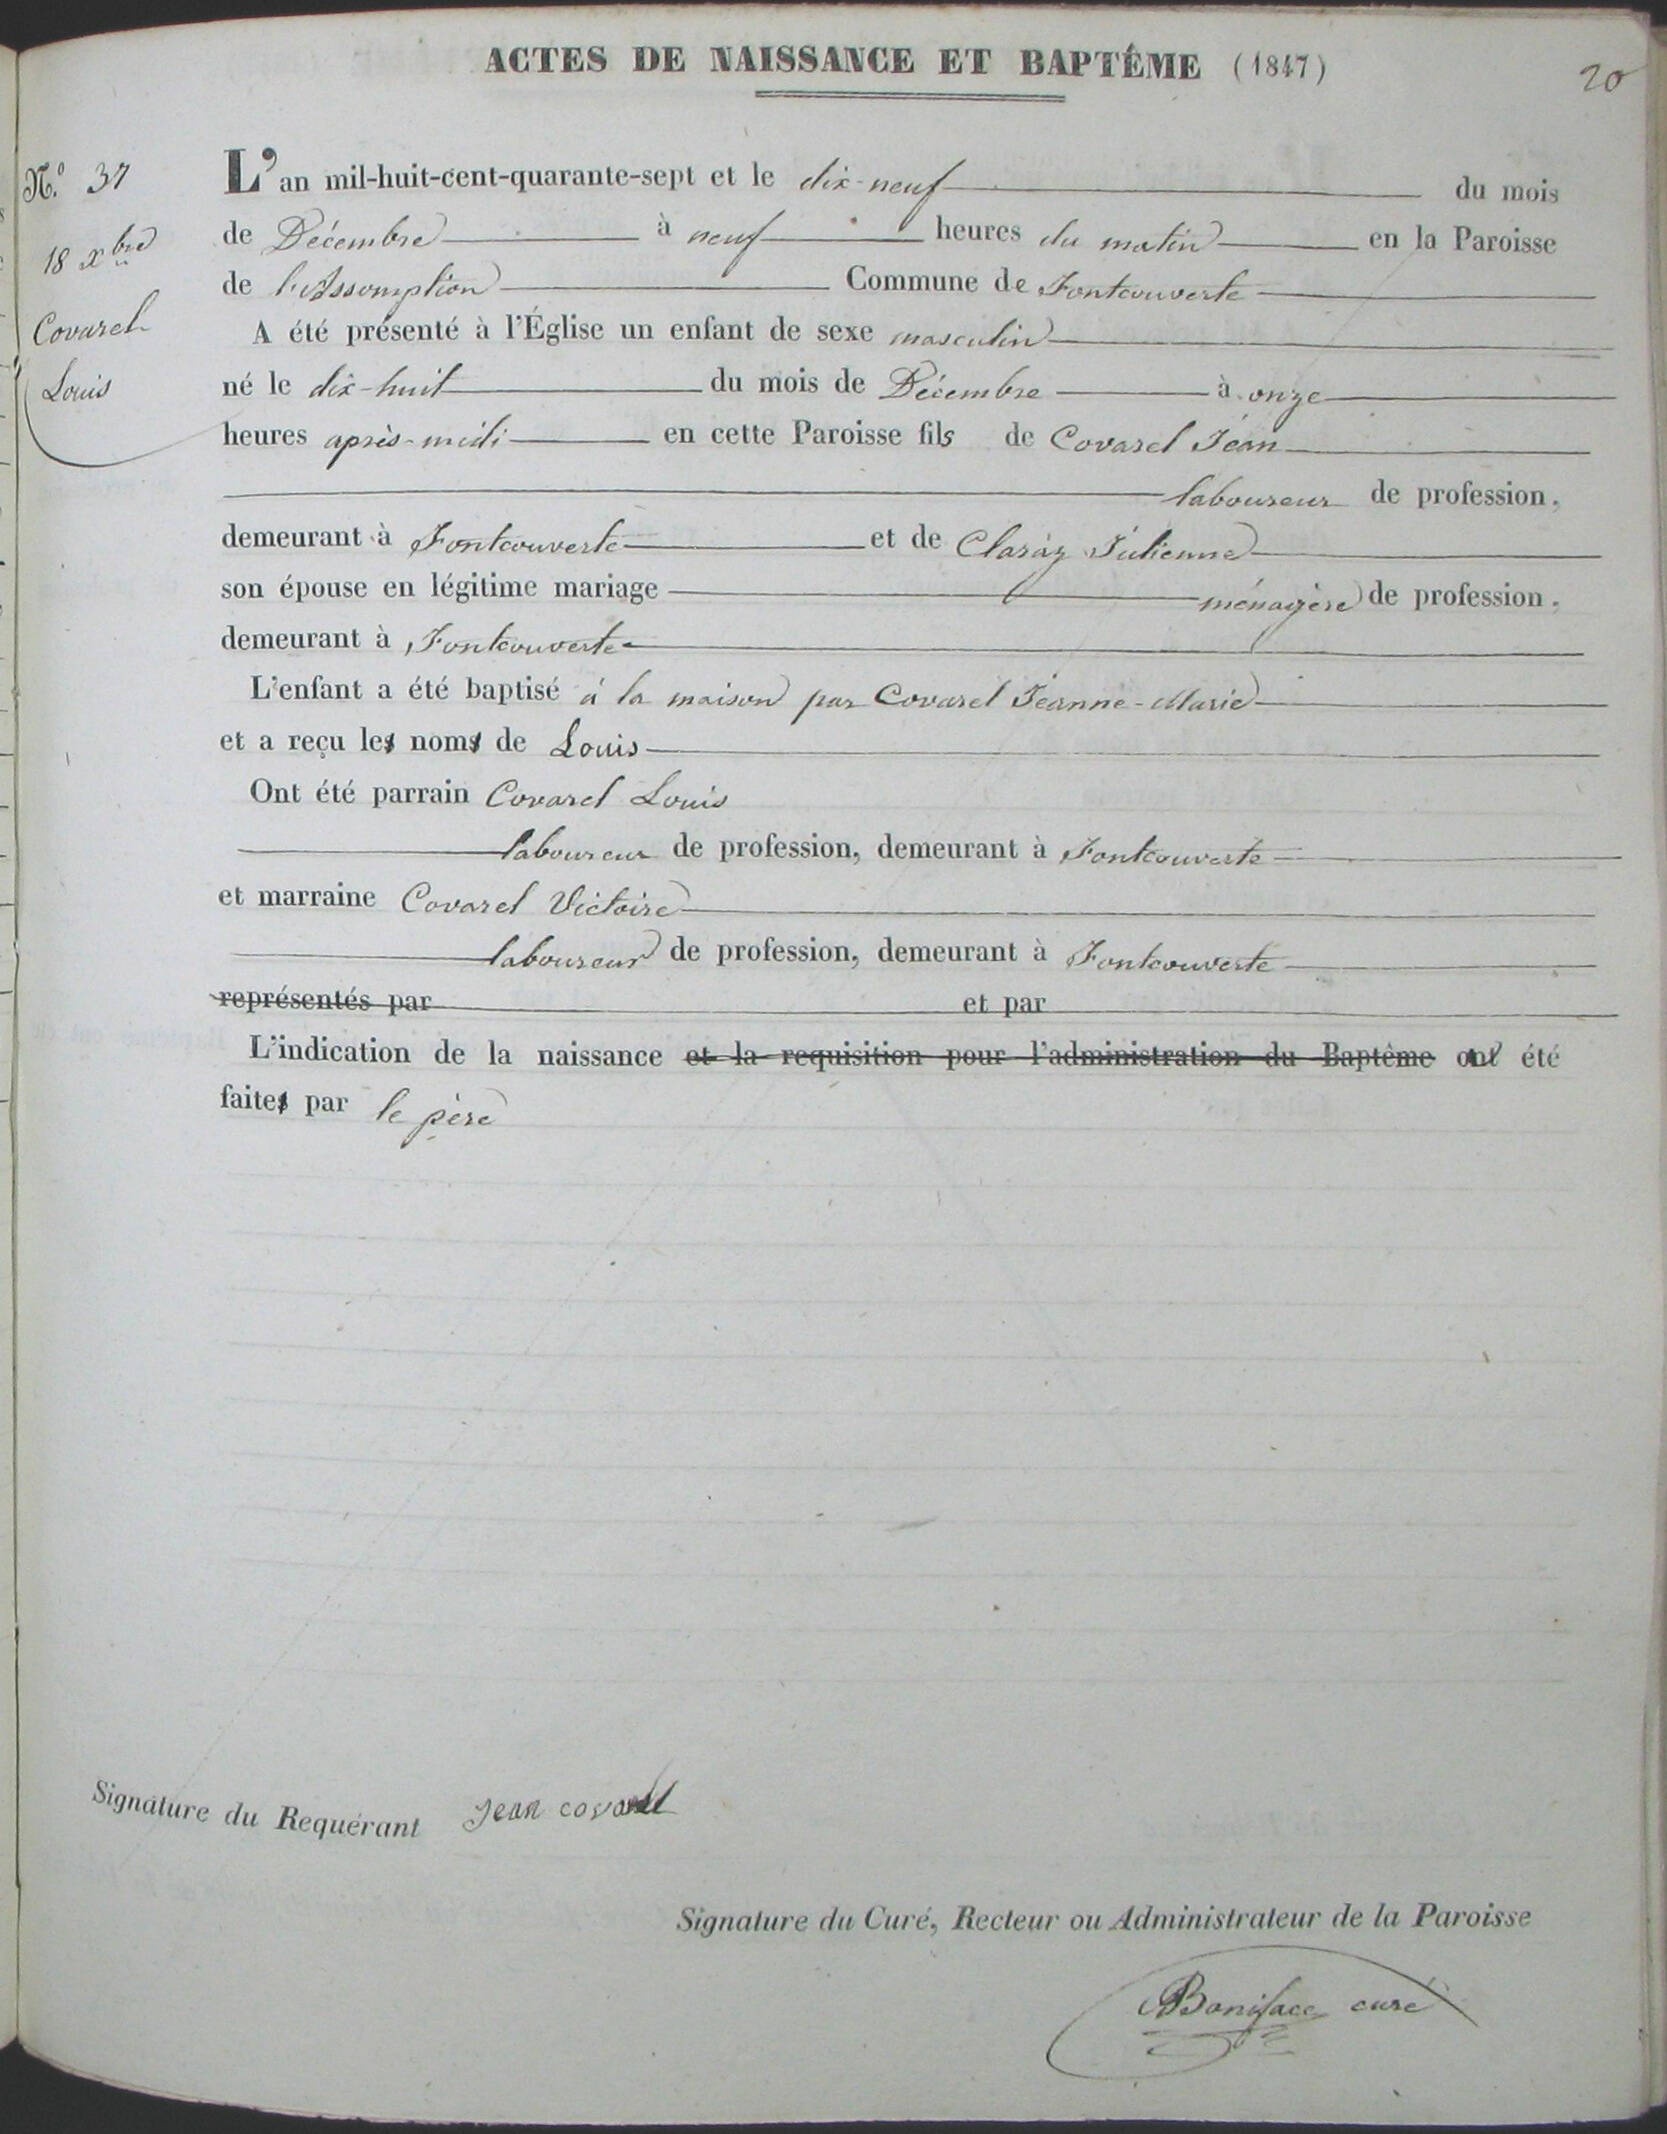 ACTES DE NAISSANCE ET BAPTÊME (1847)
20
N.º 37
18 xbre
Covarel
Louis
L'an mil-huit-cent-quarante-sept et le dix-neuf du mois
de Décembre à neuf heures du matin en la Paroisse
de l'Assomption Commune de Fontcouverte
A été présenté à l'Église un enfant de sexe masculin
né le dix-huit du mois de Décembre à onze
heures après-midi en cette Paroisse fils de Covarel Jean
laboureur de profession,
demeurant à Fontcouverte et de Claraz Julienne
son épouse en légitime mariage ménagère de profession,
demeurant à Fontcouverte
L'enfant a été baptisé à la maison par Covarel Jeanne-Marie
et a reçu les noms de Louis
Ont été parrain Covarel Louis
laboureur de profession, demeurant à Fontcouverte
et marraine Covarel Victoire
laboureur de profession, demeurant à Fontcouverte
représentés par et par
L'indication de la naissance et la requisition pour l'administration du Baptême a été
faites par le père
Signature du Requérant Jean covarel
Signature du Curé, Recteur ou Administrateur de la Paroisse
Boniface curé